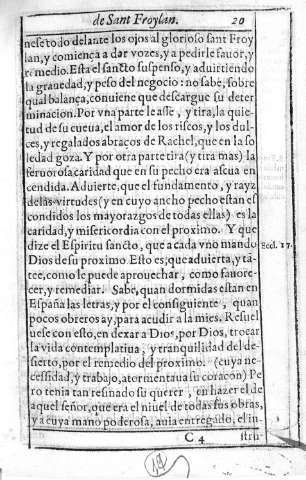 de Sant Froylan. 20
nese todo delante los ojos al glorioso sant Froy
lan, y comiença a dar vozes, y a pedirle fauor, y
remedio. Esta el sancto suspenso, y aduirtiendo
la grauedad, y peso del negocio: no sabe, sobre
qual balança, conuiene que descargue su deter
minacion. Por vna parte le asse, y tira, la quie-
tud de su cueua, el amor de los riscos, y los dul-
ces, y regalados abraços de Rachel, que en la so
ledad goza. Y por otra parte tira (y tira mas) la
feruorosa caridad que en su pecho era ascua en
cendida. Aduierte, que el fundamento, y rayz
de las virtudes (y en cuyo ancho pecho estan es
condidos los mayorazgos de todas ellas) es la
caridad, y misericordia con el proximo. Y que
dize el Espiritu sancto, que a cada vno mando
Eccl. 17.
Dios de su proximo Esto es; que aduierta, y tã-
tee, como le puede aprouechar, como fauore-
cer, y remediar. Sabe, quan dormidas estan en
España las letras, y por el consiguiente, quan
pocos obreros ay, para acudir a la mies. Resuel
uese con esto, en dexar a Dios, por Dios, trocar
la vida contemplatiua, y tranquilidad del de-
sierto, por el remedio del proximo. (cuya ne-
cessidad, y trabajo, atormentaua su coraçon) Pe
ro tenia tan resinado su querer, en hazer el de
aquel señor, que era el niuel de todas sus obras,
y a cuya mano poderosa, auia entregado, el in-
C 4 stru